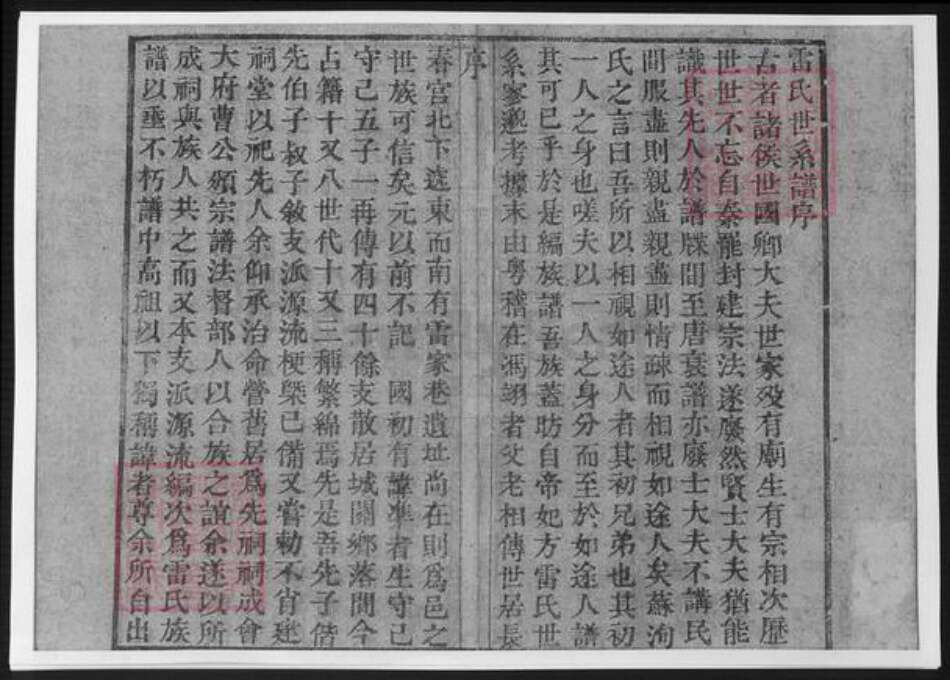 雷氏世系譜序
古者諸侯世國卿大夫世家歿有廟生有宗相次歷
世世不忘自秦罷封建宗法遂廢然賢士大夫猶能
識其先人於譜牒間至唐衰譜亦廢士大夫不講民
間服盡則親盡親盡則情疎而相視如途人矣蘇洵
氏之言曰吾所以相視如途人者其初兄弟也其初
一人之身也嗟夫以一人之身分而至於如途人譜
其可已乎於是編族譜吾族蓋昉自帝妃方雷氏世
系寥邈考據末由粵稽在馮翊者父老相傳世居長
序
春宮北下遶東而南有雷家巷遺址尚在則為邑之
世族可信矣元以前不記 國初有諱準者生守己
守己五子一再傳有四十餘支散居城關鄉落間今
占籍十又八世代十又三稱繁綿焉先是吾先子偕
先伯子叔子敘支派源流梗槩已備又嘗勅不肖廷
祠堂以祀先人余仰承治命營舊居為先祠祠成會
大府曹公頒宗譜法督部人以合族之誼余遂以所
成祠與族人共之而又本支派源流編次為雷氏族
譜以垂不朽譜中高祖以下獨稱諱者尊余所自出